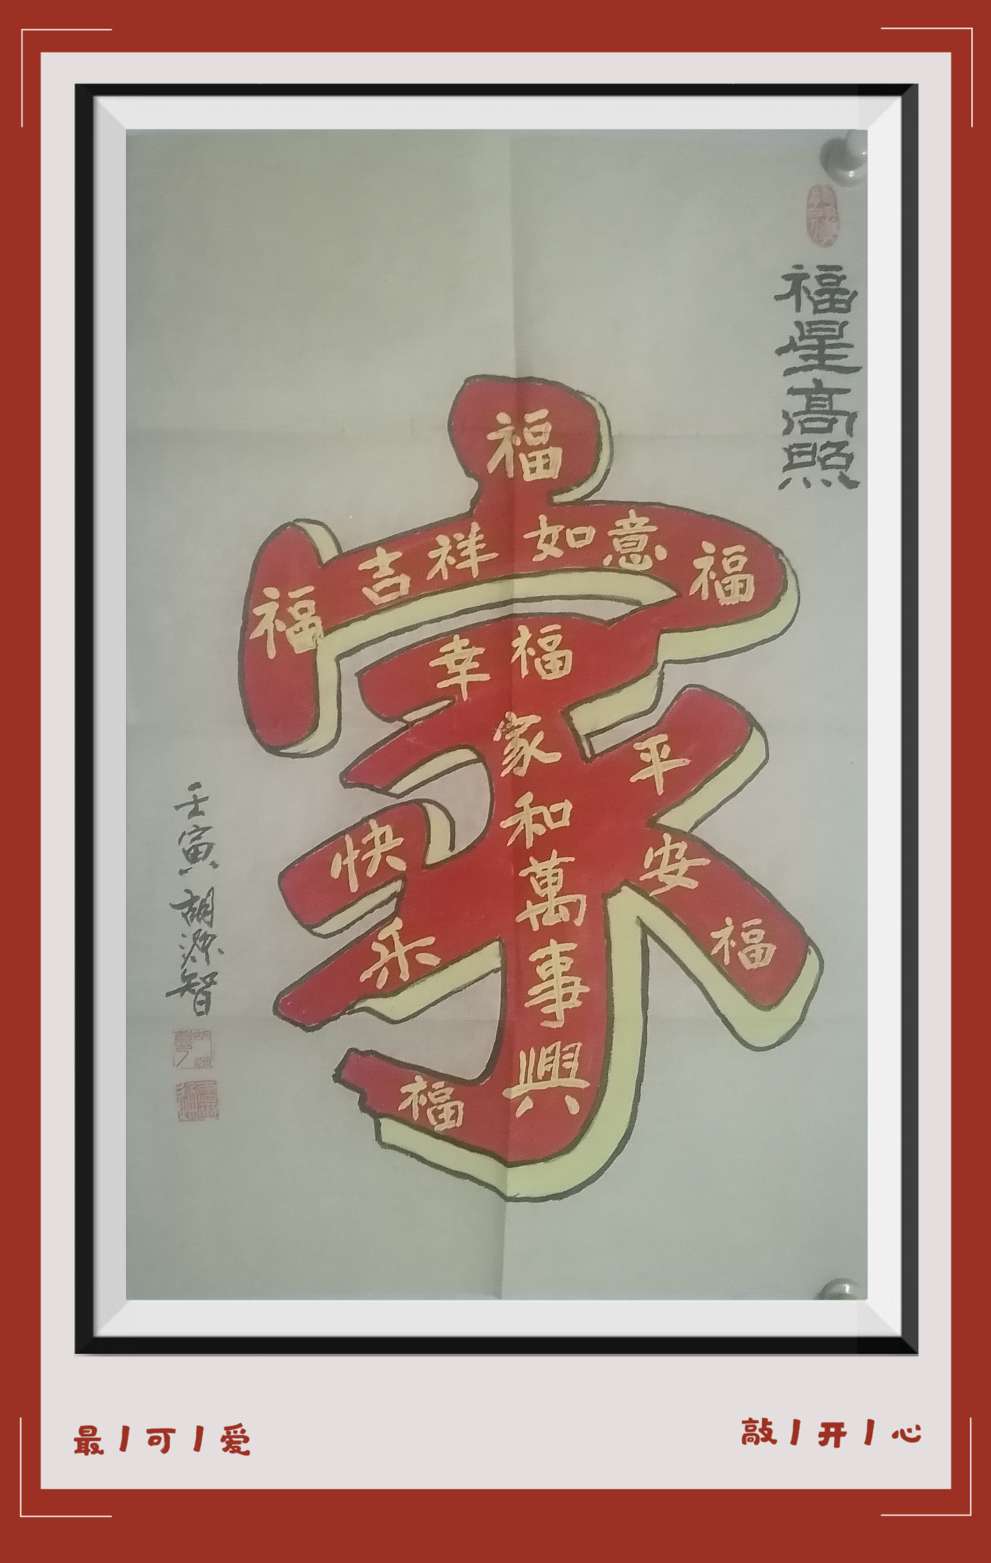 福星高照
福
福 吉祥如意 福
幸福
家和萬事興
平安福
快乐
福
壬寅 胡源智
最丨可丨爱
敲丨开丨心